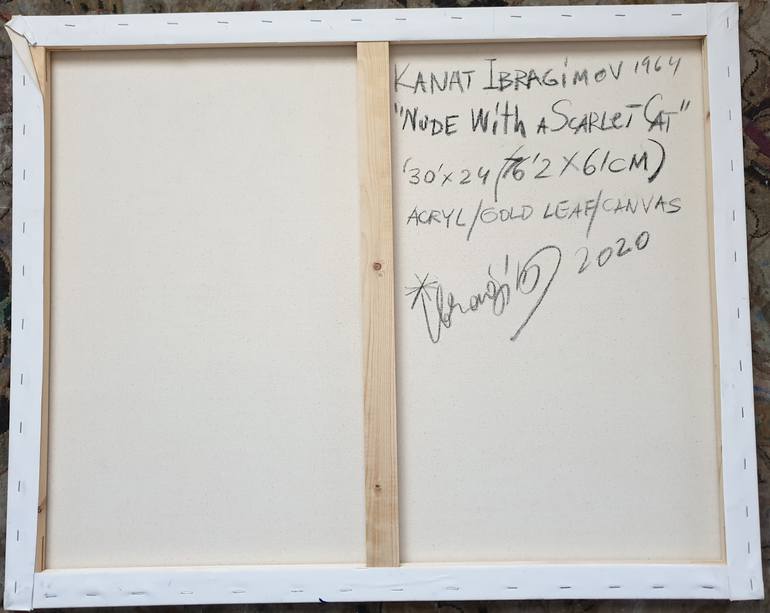 KANAT IBRAGIMOV 1964
"NUDE With A SCARLET CAT"
'30'x 24 (76'2 X 61CM)
ACRYL/GOLD LEAF/CANVAS
2020